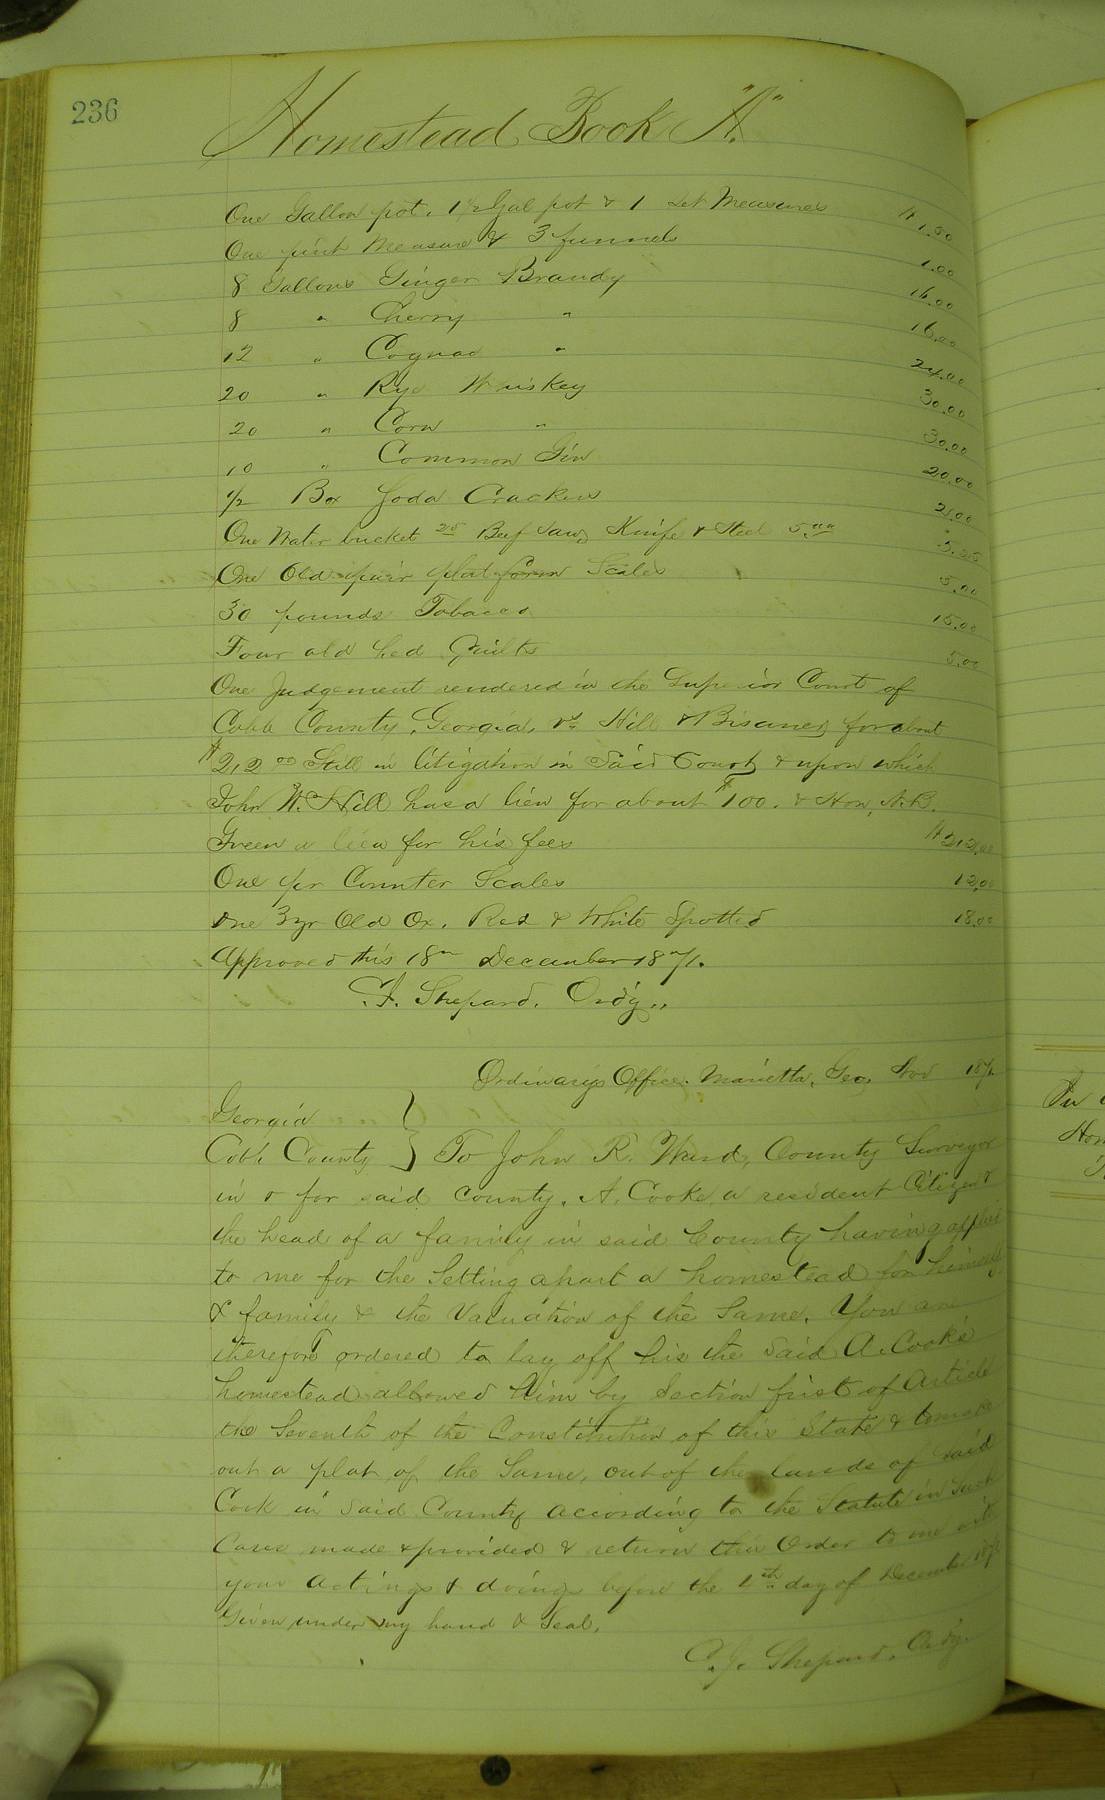 236
Homestead Book "A"
One Gallon pot. 1 1/2 Gal pot & 1 Set Measures $1.50
One pint Measure & 3 funnels 1.00
8 Gallons Ginger Brandy 16.00
8 " Cherry " 16.00
12 " Cognac " 24.00
20 " Rye Whiskey 30.00
20 " Corn " 30.00
10 " Common Gin 20.00
1/2 Box Soda Crackers 2.00
One Water bucket 25 Beef Saw, Knife & Steel 5.00 5.25
One Old pair platform Scales 5.00
30 pounds Tobacco 15.00
Four old bed Quilts 5.00
One Judgement rendered in the Superior Court of
Cobb County, Georgia, vs Hill & for about
$212 00 Still in litigation in Said Court & upon which
John W. Hill has a lien for about $100. & Hon. N.B.
Green a lien for his fees $212.00
One pr Counter Scales 12.00
One 3 yr Old Ox. Red & White Spotted 18.00
Approved this 18th December 1871.
C.J. Shepard. Ordy.,
Ordinarys Office. Marietta, Geo, Nov 1871
Georgia
Cobb County } To John R. Ward, County Surveyor
in & for said County. A. Cooke a resident Citizen &
the head of a family in said County having applied
to me for the Setting apart a homestead for himself
& family & the Valuation of the Same. You are
therefore ordered to lay off his the Said A. Cook's
homestead allowed him by Section first of Article
the Seventh of the Constitution of this State & to make
out a plat of the Same, out of the lands of said
Cook in Said County according to the Statute in such
Cases made & provided & return this Order to me with
your actings & doings before the 1th day of December 1871
Given under my hand & Seal.
C.J. Shepard, Ordy.
In
Hom